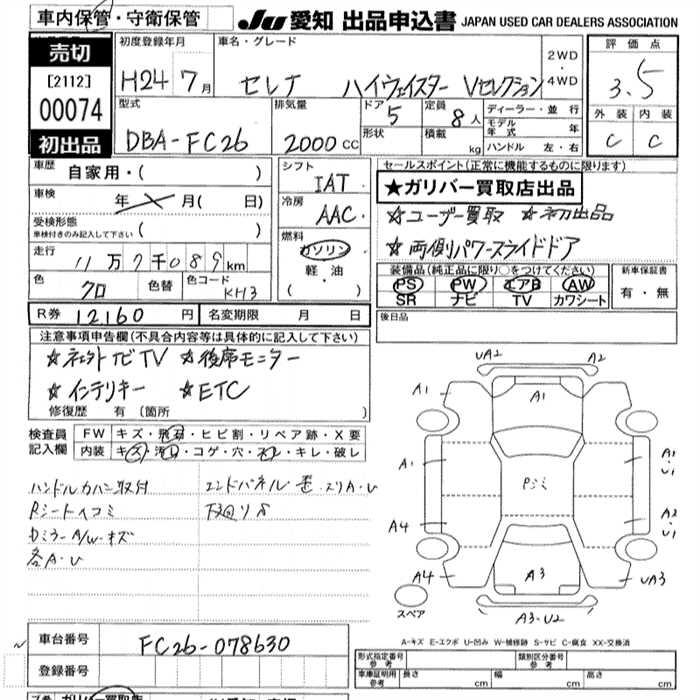 車内保管・守衛保管
JU 愛知 出品申込書 JAPAN USED CAR DEALERS ASSOCIATION
売切
[2112]
00074
初出品
初度登録年月
H24 7月
車名・グレード
セレナ ハイウェイスター Vセレクション
2WD
・
4WD
評価点
3.5
外装 内装
C C
型式
DBA-FC26
排気量
2000 CC
ドア 5
形状
定員 8人
積載 kg
ディーラー・並行
モデル年式 年
ハンドル 左・右
車歴 自家用・( )
車検 年 月( 日)
受検形態
車検付きのみ記入して下さい ( )
走行 11万7千089km
色 クロ 色替 色コード KH3
シフト
IAT
冷房
AAC
燃料
ガソリン
・
軽油
( )
セールスポイント(正常に機能するものに限ります)
★ガリバー買取店出品
☆ユーザー買取 ☆初出品
☆両側パワースライドドア
装備品(純正品に限り○をつけてください)
PS PW エアB AW
SR ナビ TV カワシート
新車保証書
有・無
R券 12,160 円 名変期限 月 日
後日品
注意事項申告欄(不具合内容等は具体的に記入して下さい)
☆社外ナビTV ☆後席モニター
☆インテリキー ☆ETC
修復歴 有(箇所 )
検査員記入欄
FW キズ・飛石・ヒビ割・リペア跡・X要
内装 キズ・汚れ・コゲ・穴・スレ・キレ・破レ
ハンドルカバー取付 エンドパネル 歪 スリA・U
Rシートヘコミ 下廻りS
Dミラー A/W・キズ
各A・U
UA2 A2
A1 A1
A1 Rジミ A1・U1
A4 A2・U1
A4 A3 UA3
スペア A3-U2
A-キズ E-エクボ U-凹み W-補修跡 S-サビ C-腐食 XX-交換済
車台番号 FC26-078630
登録番号
形式指定番号 参考 類別区分番号 参考
車庫証明用 参考 長さ cm 幅 cm 高さ cm